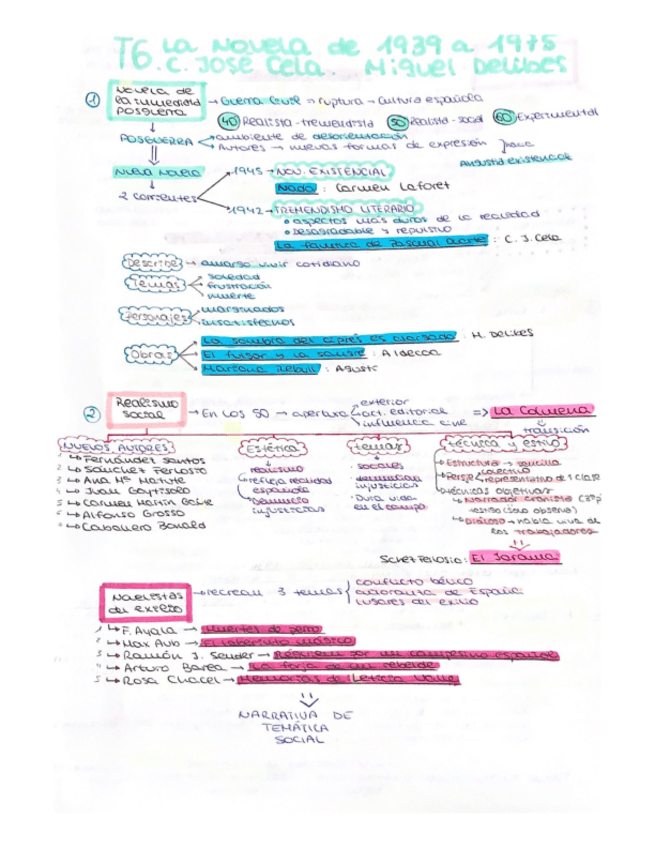 T6. La Novela de 1939 a 1975
C. José Cela. Miguel Delibes
① Novela de la inmediata posguerra → Guerra Civil = ruptura → Cultura española
40 Realista-tremendista 50 Realista-social 60 Experimental
POSGUERRA → ambiente de desorientación
→ Autores → nuevas formas de expresión para
Angustia existencial
Nueva novela
2 corrientes
1945 → NOV. EXISTENCIAL
Nada : Carmen Laforet
1942 → TREMENDISMO LITERARIO
• aspectos más duros de la realidad
• Desagradable y repulsivo
La familia de Pascual Duarte : C. J. Cela
Describe → amargo vivir cotidiano
Temas
soledad
frustración
muerte
Personajes
marginados
insatisfechos
Obras
La sombra del ciprés es alargada : M. Delibes
El fulgor y la sangre : Aldecoa
Mariona Rebull : Agustí
② Realismo social → En los 50 → apertura
exterior
act. editorial
influencia cine
=> La Colmena
transición
NUEVOS AUTORES
1 ↳ Fernández Santos
2 ↳ Sánchez Ferlosio
3 ↳ Ana Mª Matute
4 ↳ Juan Goytisolo
5 ↳ Carmen Martín Gaite
6 ↳ Alfonso Grosso
↳ Caballero Bonald
Estética
realismo
refleja realidad española
Denuncia injusticias
temas
· sociales
injusticias
· Dura vida en el campo
técnica y estilo
↳ Estructura → sencilla
↳ Persje
colectivo
representativo de 1 clase
↳ técnicas objetivas
↳ Narrador cronista (3ªp
testigo (solo observa)
↳ Diálogo → habla viva de los trabajadores
Schez Ferlosio: El Jarama
Novelistas del exilio → recrean 3 temas
conflicto bélico
añoranza de España
lugares del exilio
1 ↳ F. Ayala → Muertes de perro
2 ↳ Max Aub → El laberinto mágico
3 ↳ Ramón J. Sender → Réquiem por un campesino español
4 ↳ Arturo Barea → La forja de un rebelde
5 ↳ Rosa Chacel → Memorias de Leticia Valle
NARRATIVA DE
TEMÁTICA
SOCIAL